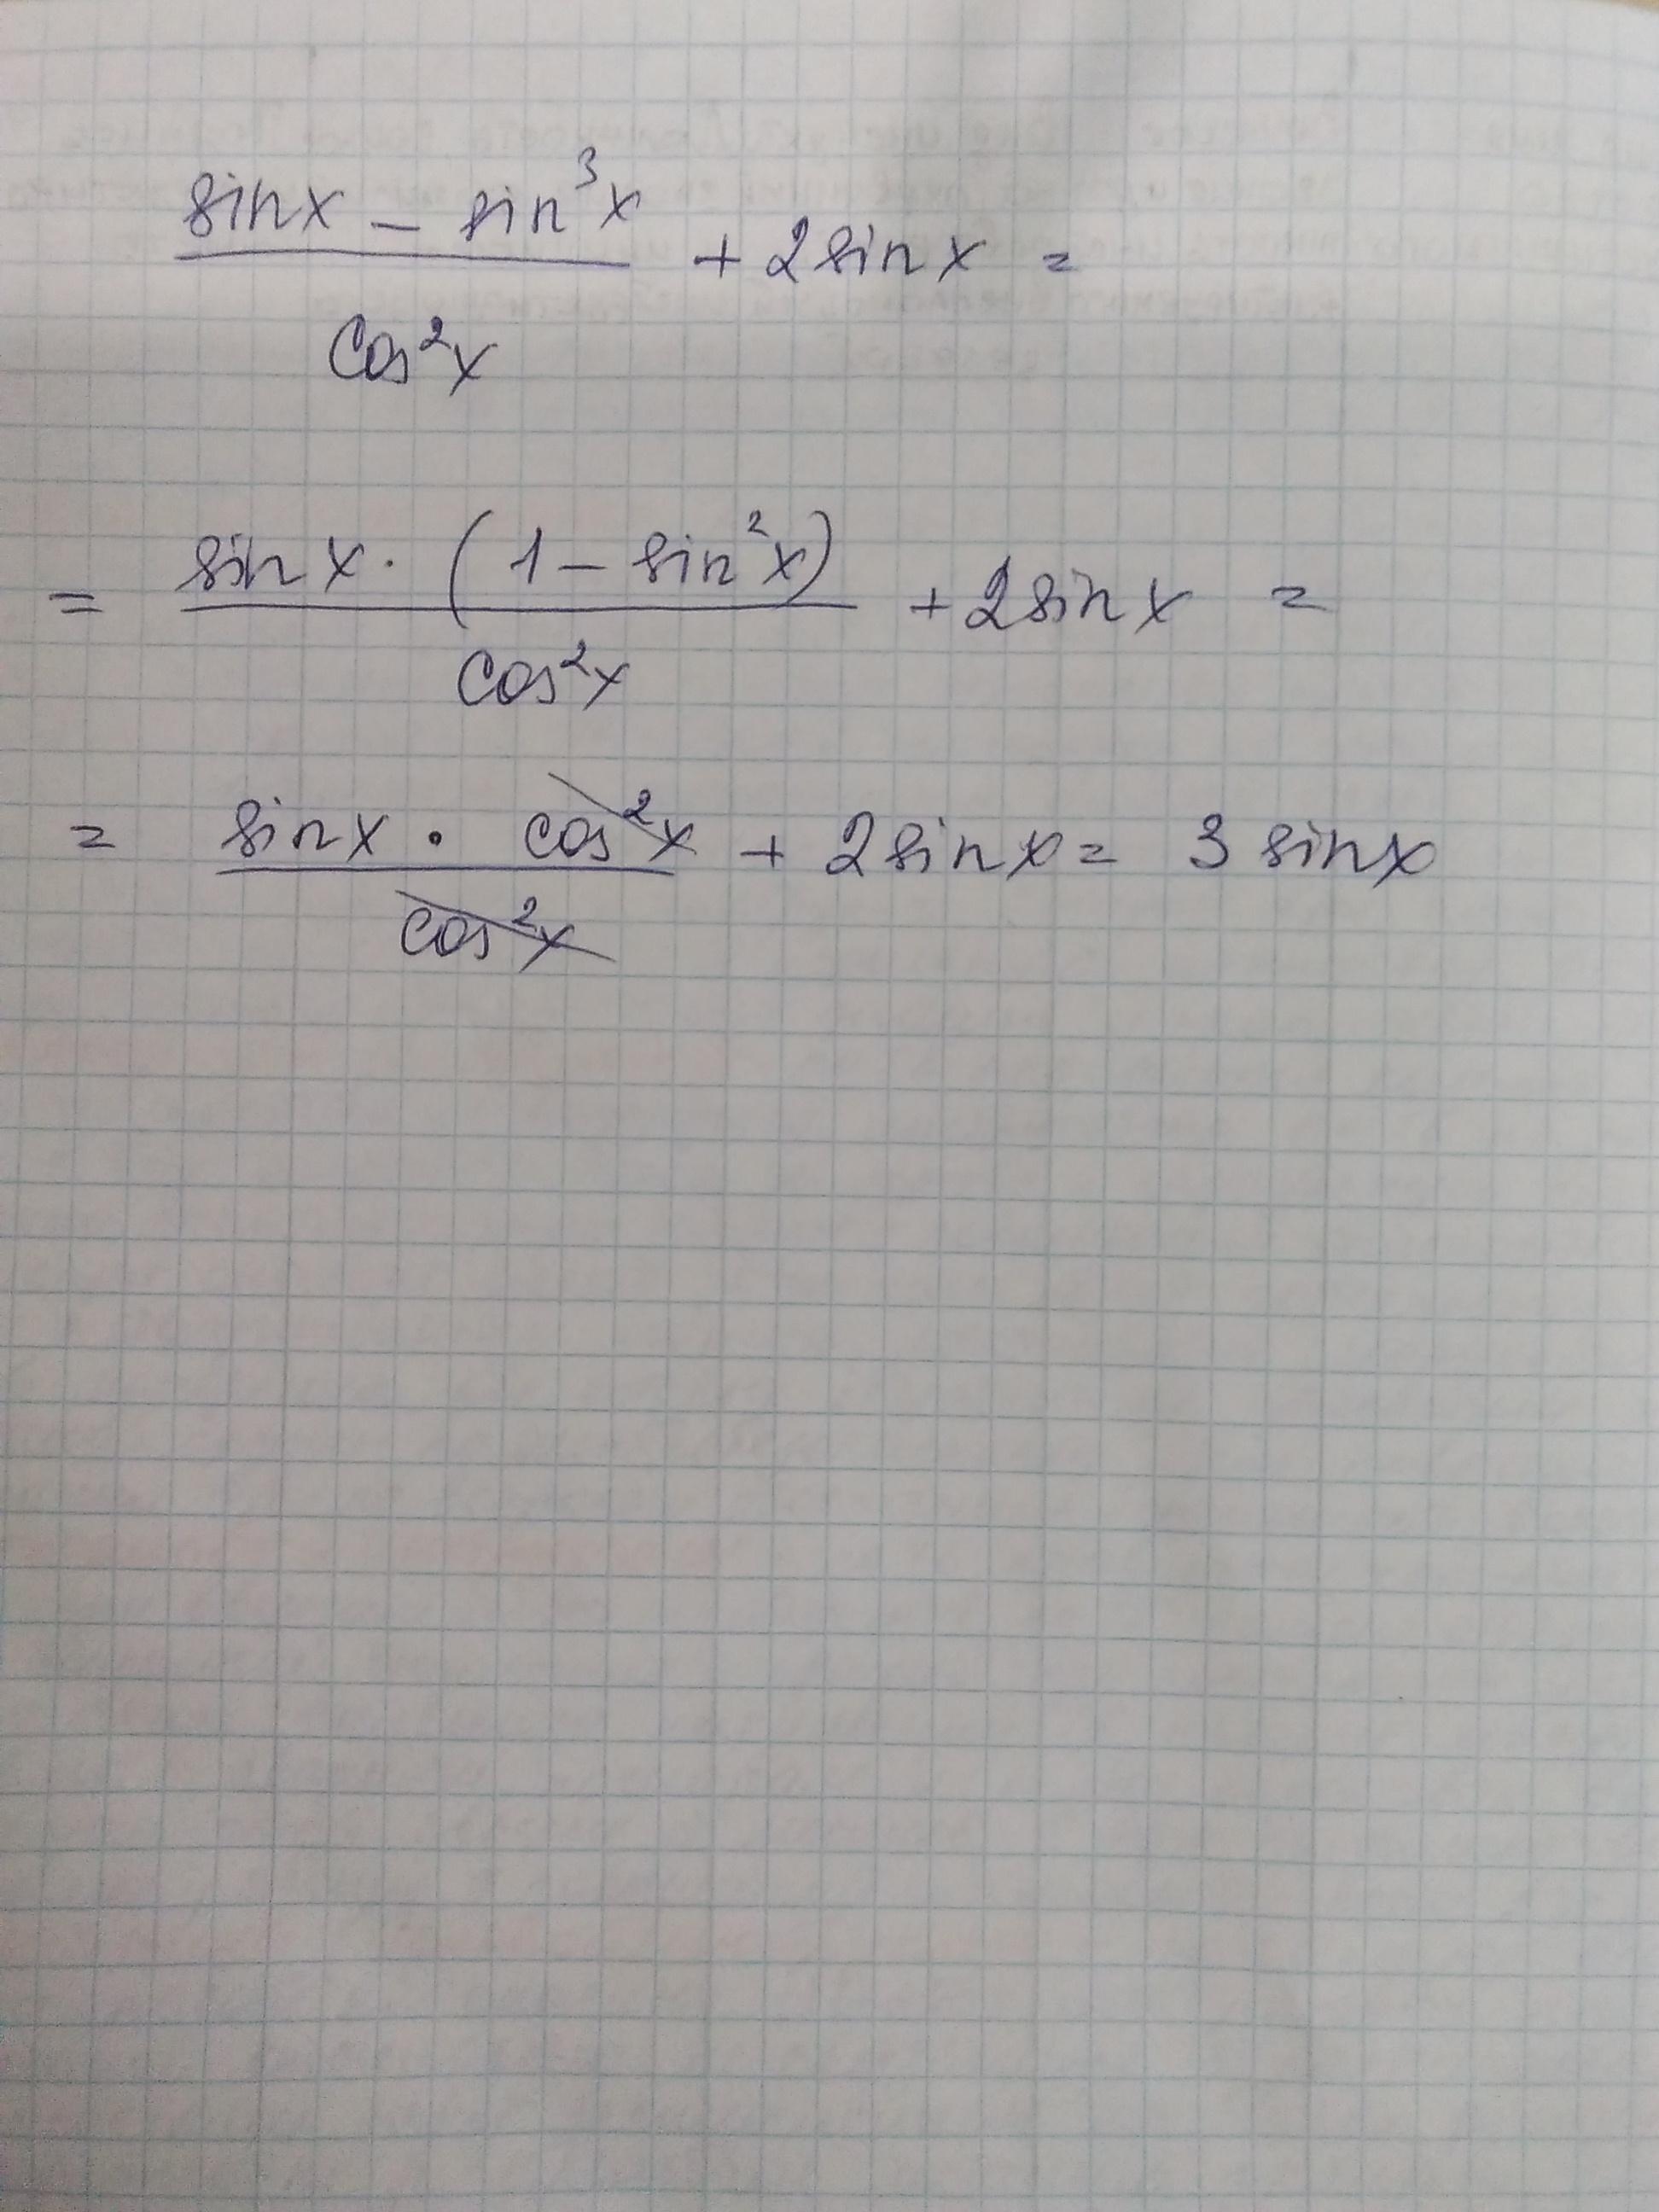 sinx - sin³x / cos²x + 2sinx =
= sinx · (1 - sin²x) / cos²x + 2sinx =
= sinx · cos²x / cos²x + 2sinx = 3 sinx